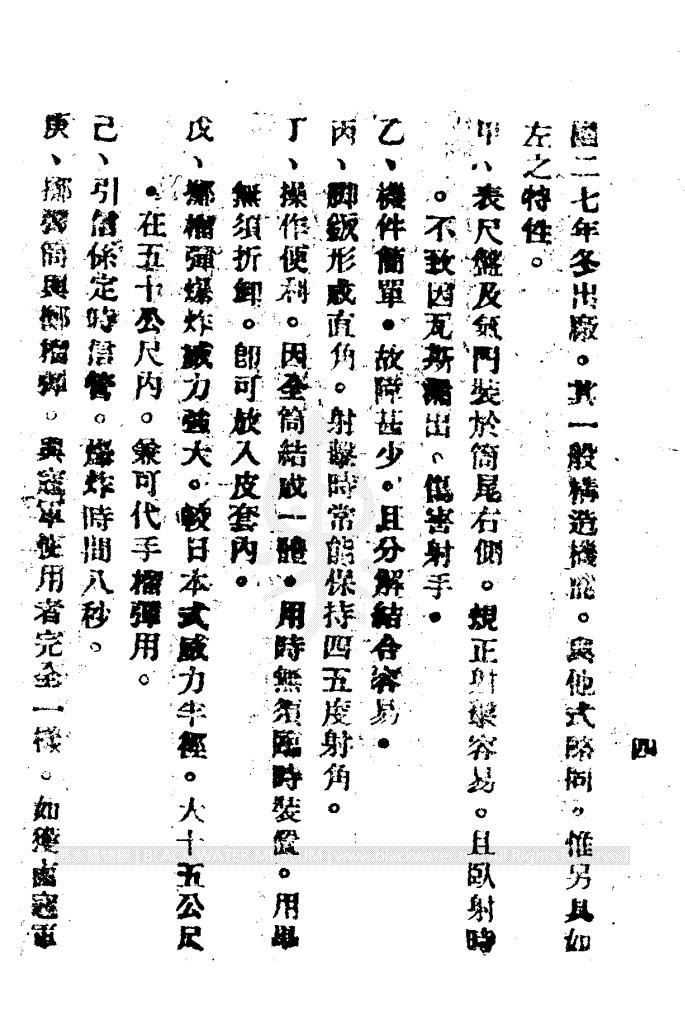 四
國二七年冬出廠。其一般構造機能。與他式略同。惟另具如
左之特性。
甲、表尺盤及氣門裝於筒尾右側。規正射擊容易。且臥射時
。不致因瓦斯漏出、傷害射手。
乙、機件簡單。故障甚少。且分解結合容易。
丙、脚鈑形成直角。射擊時常能保持四五度射角。
丁、操作便利。因全筒結成一體。用時無須臨時裝置。用畢
無須折卸。卽可放入皮套內。
戊、擲榴彈爆炸威力強大。較日本式威力半徑。大十五公尺
。在五十公尺內。兼可代手榴彈用。
己、引信係定時信管。爆炸時間八秒。
庚、擲彈筒與擲榴彈。與寇軍使用者完全一樣。如獲寇軍
BLACKWATER MUSEUM | www.blackwater All Rights